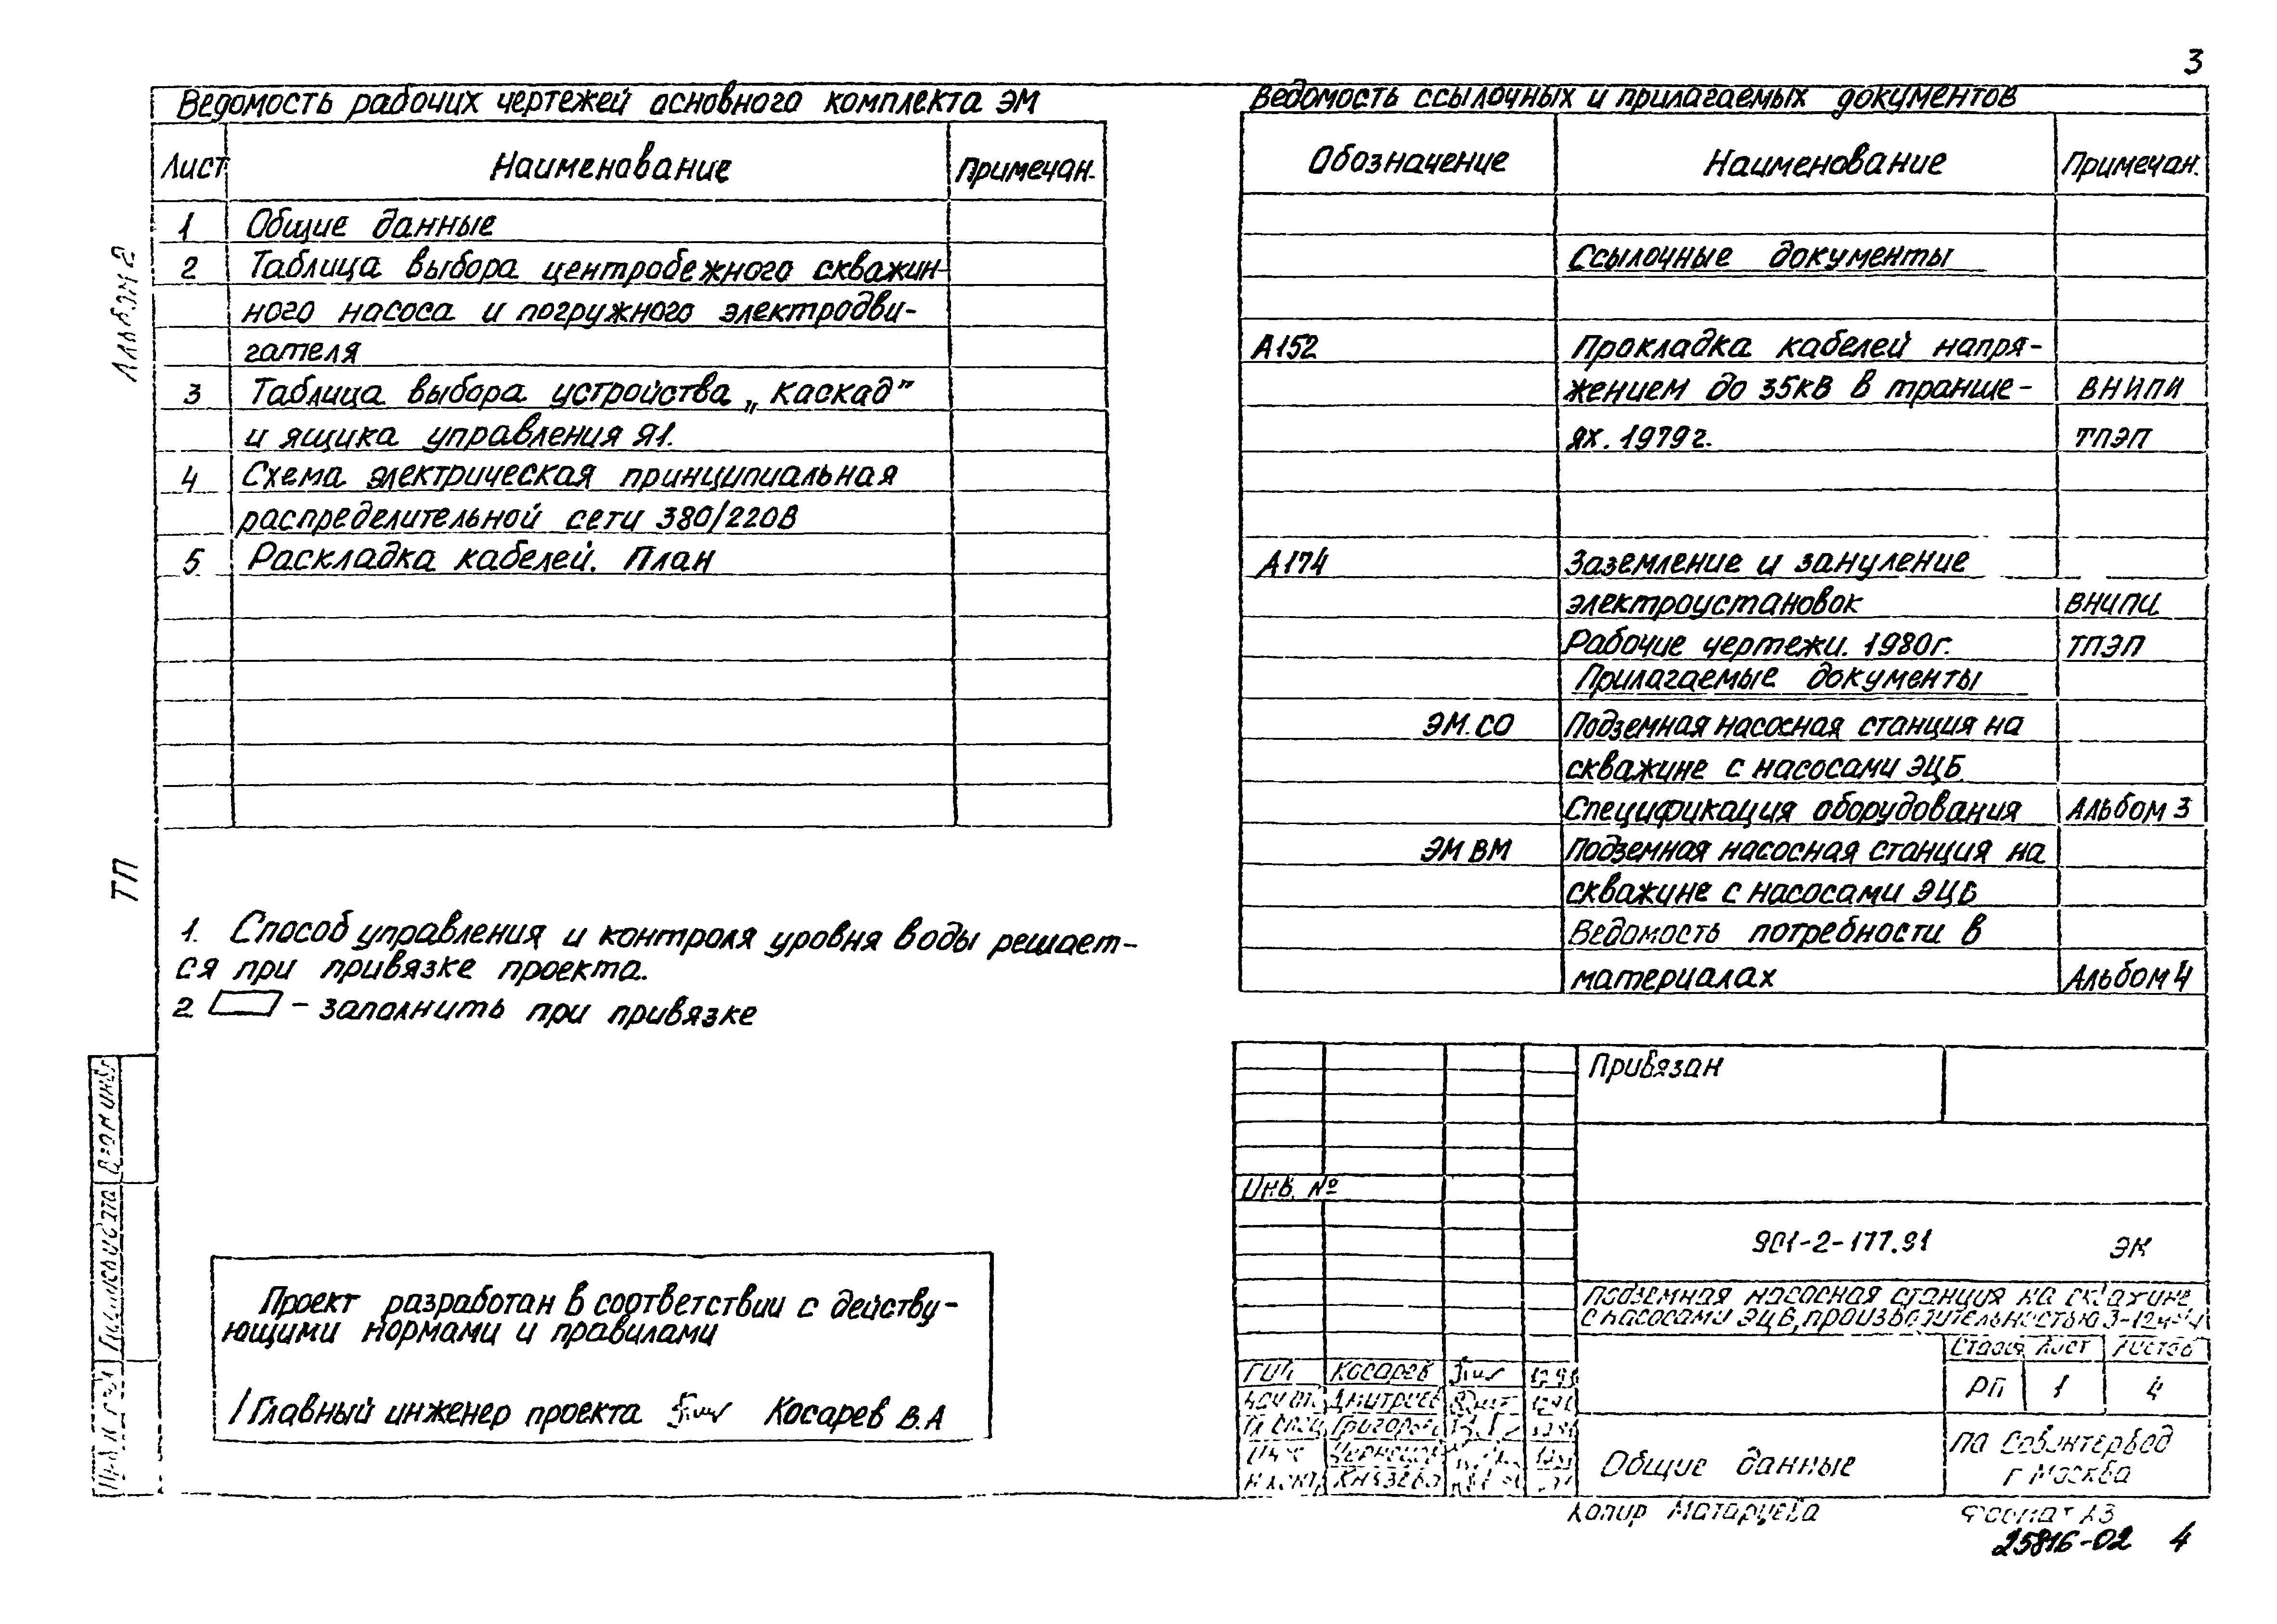 3
Ведомость рабочих чертежей основного комплекта ЭМ
Лист Наименование Примечан.
1 Общие данные
2 Таблица выбора центробежного скважин-
ного насоса и погружного электродви-
гателя
3 Таблица выбора устройства „Каскад"
и ящика управления Я1.
4 Схема электрическая принципиальная
распределительной сети 380/220В
5 Раскладка кабелей. План
Альбом 2
ТП
1. Способ управления и контроля уровня воды решает-
ся при привязке проекта.
2 – заполнить при привязке
Проект разработан в соответствии с действу-
ющими нормами и правилами
Главный инженер проекта Косарев В.А
Ведомость ссылочных и прилагаемых документов
Обозначение Наименование Примечан.
Ссылочные документы
А152 Прокладка кабелей напря-
жением до 35кВ в транше- ВНИПИ
ях. 1979г. ТПЭП
А174 Заземление и зануление
электроустановок ВНИПИ
Рабочие чертежи. 1980г. ТПЭП
Прилагаемые документы
ЭМ.СО Подземная насосная станция на
скважине с насосами ЭЦВ
Спецификация оборудования Альбом 3
ЭМ ВМ Подземная насосная станция на
скважине с насосами ЭЦВ
Ведомость потребности в
материалах Альбом 4
Привязан
Инв. №
901-2-177.91 ЭК
Подземная насосная станция на скважине
с насосами ЭЦВ, производительностью
Стадия Лист Листов
РП 1 4
ГИП Косарев
Дмитриев
Общие данные
г Москва
Копир Формат А3
25816-02 4